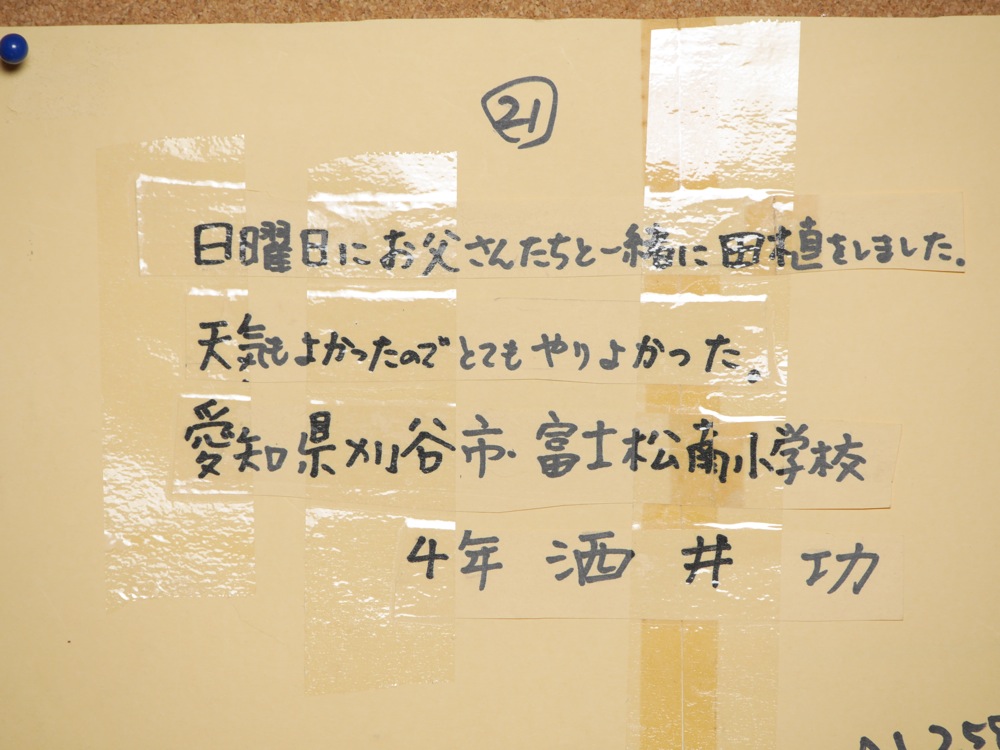 21
日曜日にお父さんたちと一緒に田植をしました.
天気もよかったのでとてもやりよかった。
愛知県刈谷市・富士松南小学校
4年 酒井 功